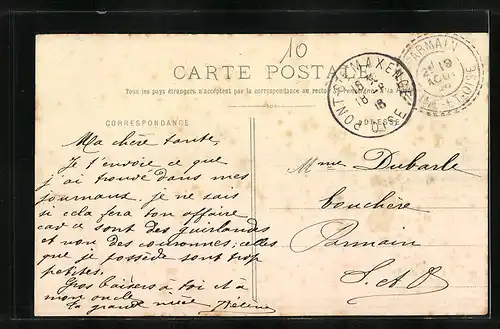 10
CARTE POSTALE
Tous les pays étrangers n'acceptent pas la correspondance au recto
CORRESPONDANCE
ADRESSE
PONT-STE-MAXENCE
OISE
18
PARMAIN
SEINE-ET-OISE
19
Ma chère tante,
Je t'envoie ce que
j'ai trouvé dans mes
journaux, je ne sais
si cela fera ton affaire
car ce sont des guirlandes
et non des couronnes; celles
que je possède sont trop
petites.
Gros baisers à toi et à
mon oncle
ta grande nièce Hélène
Mme Dubarle
bouchère
Parmain
S. et O